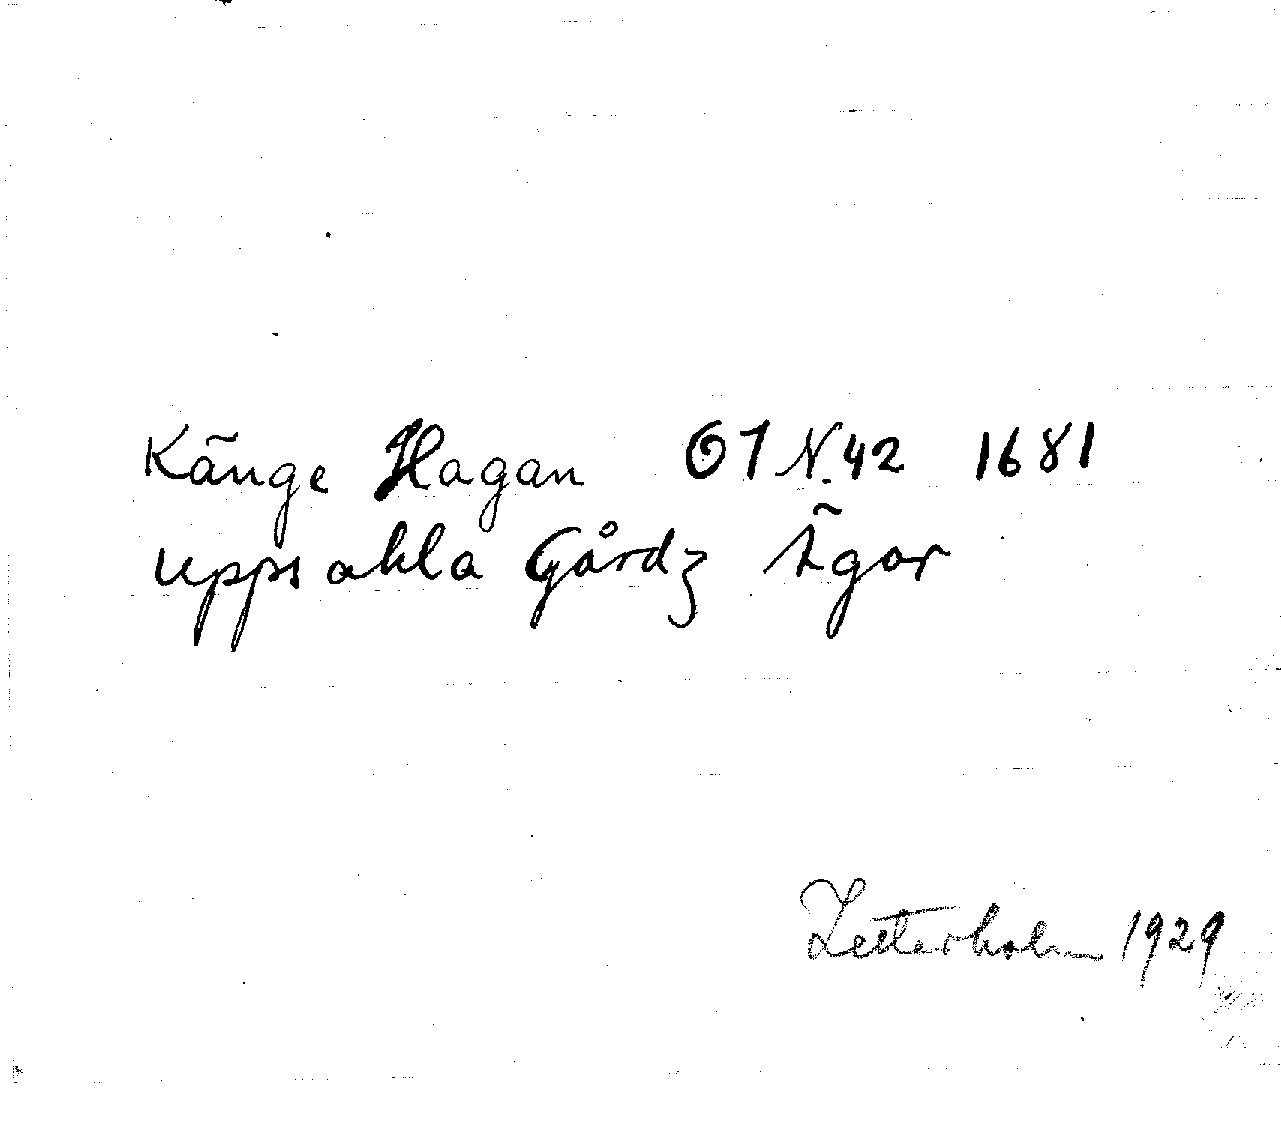 Känge Hagan O7 N. 42 1681
Uppsahla Gårdz Ägor
Zetterholm 1929